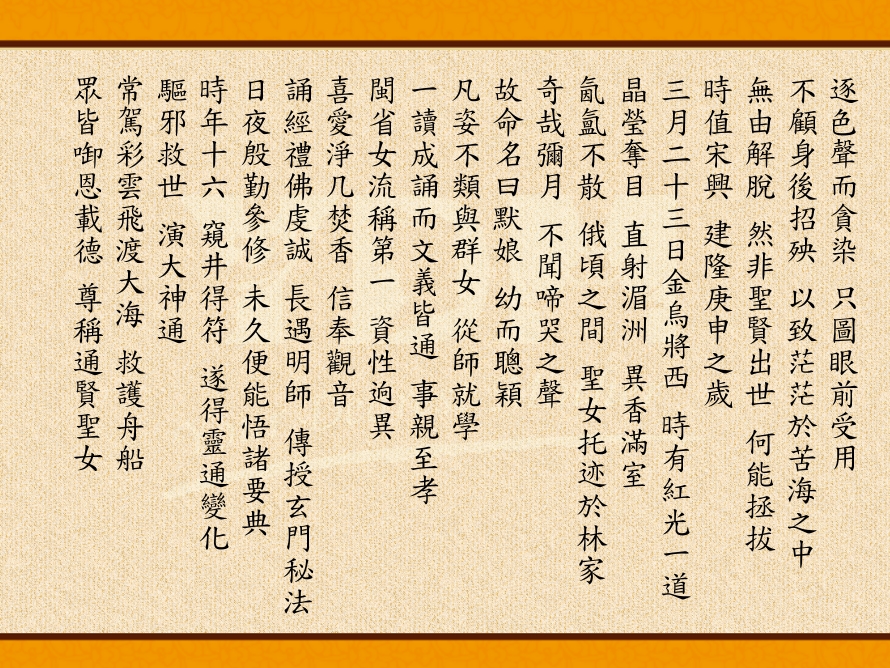 逐色聲而貪染 只圖眼前受用
不顧身後招殃 以致茫茫於苦海之中
無由解脫 然非聖賢出世 何能拯拔
時值宋興 建隆庚申之歲
三月二十三日金烏將西 時有紅光一道
晶瑩奪目 直射湄洲 異香滿室
氤氳不散 俄頃之間 聖女托迹於林家
奇哉彌月 不聞啼哭之聲
故命名曰默娘 幼而聰穎
凡姿不類與群女 從師就學
一讀成誦而文義皆通 事親至孝
閩省女流稱第一 資性逈異
喜愛淨几焚香 信奉觀音
誦經禮佛虔誠 長遇明師 傳授玄門秘法
日夜殷勤參修 未久便能悟諸要典
時年十六 窺井得符 遂得靈通變化
驅邪救世 演大神通
常駕彩雲飛渡大海 救護舟船
眾皆啣恩載德 尊稱通賢聖女